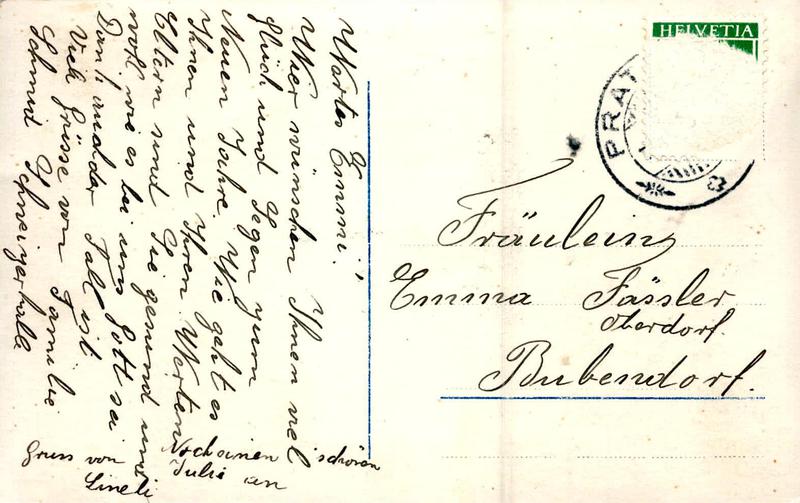 Wertes Emmi!
Wier wünschen Ihnen viel
Glück und Segen zum
Neuen Jahre. Wie geht es
Ihnen und Ihren Werten
Eltern sind Sie gesund und
wohl wie es bei uns Gott sei
Dank auch der Fall ist.
Viele Grüsse von Familie
Schmid Schweizerhalle
Noch einen schönen
Gruss von Julie an
Lineli
HELVETIA
PRAT
Fräulein
Emma Fässler
Oberdorf.
Bubendorf.